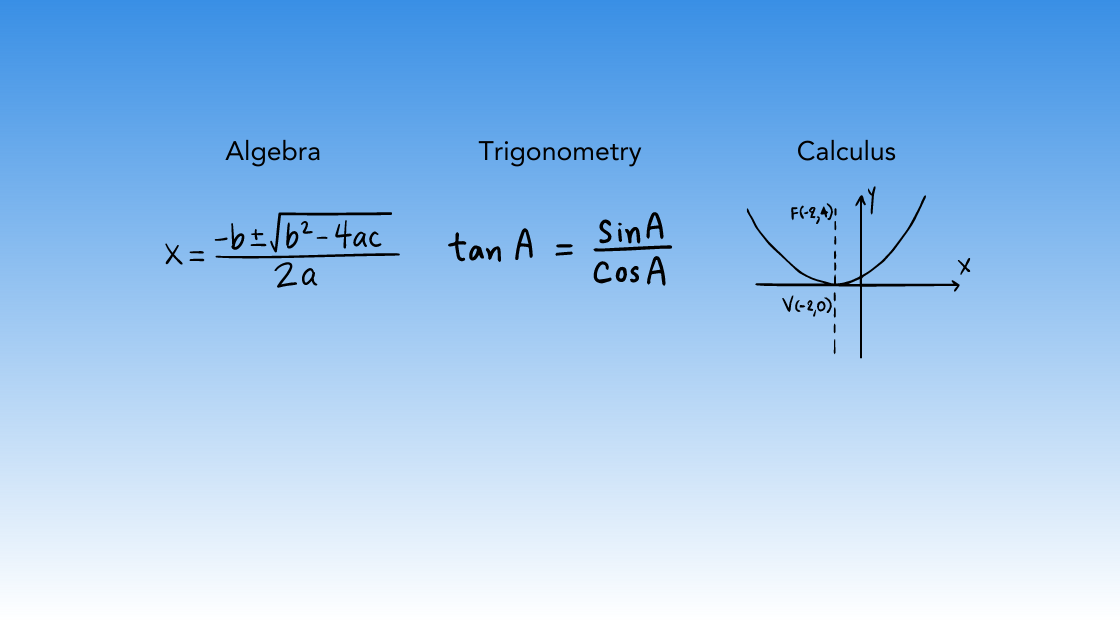 Algebra
x = -b ± √b² - 4ac
2a
Trigonometry
tan A = sin A
cos A
Calculus
Y
F(-2,4)
X
V(-2,0)